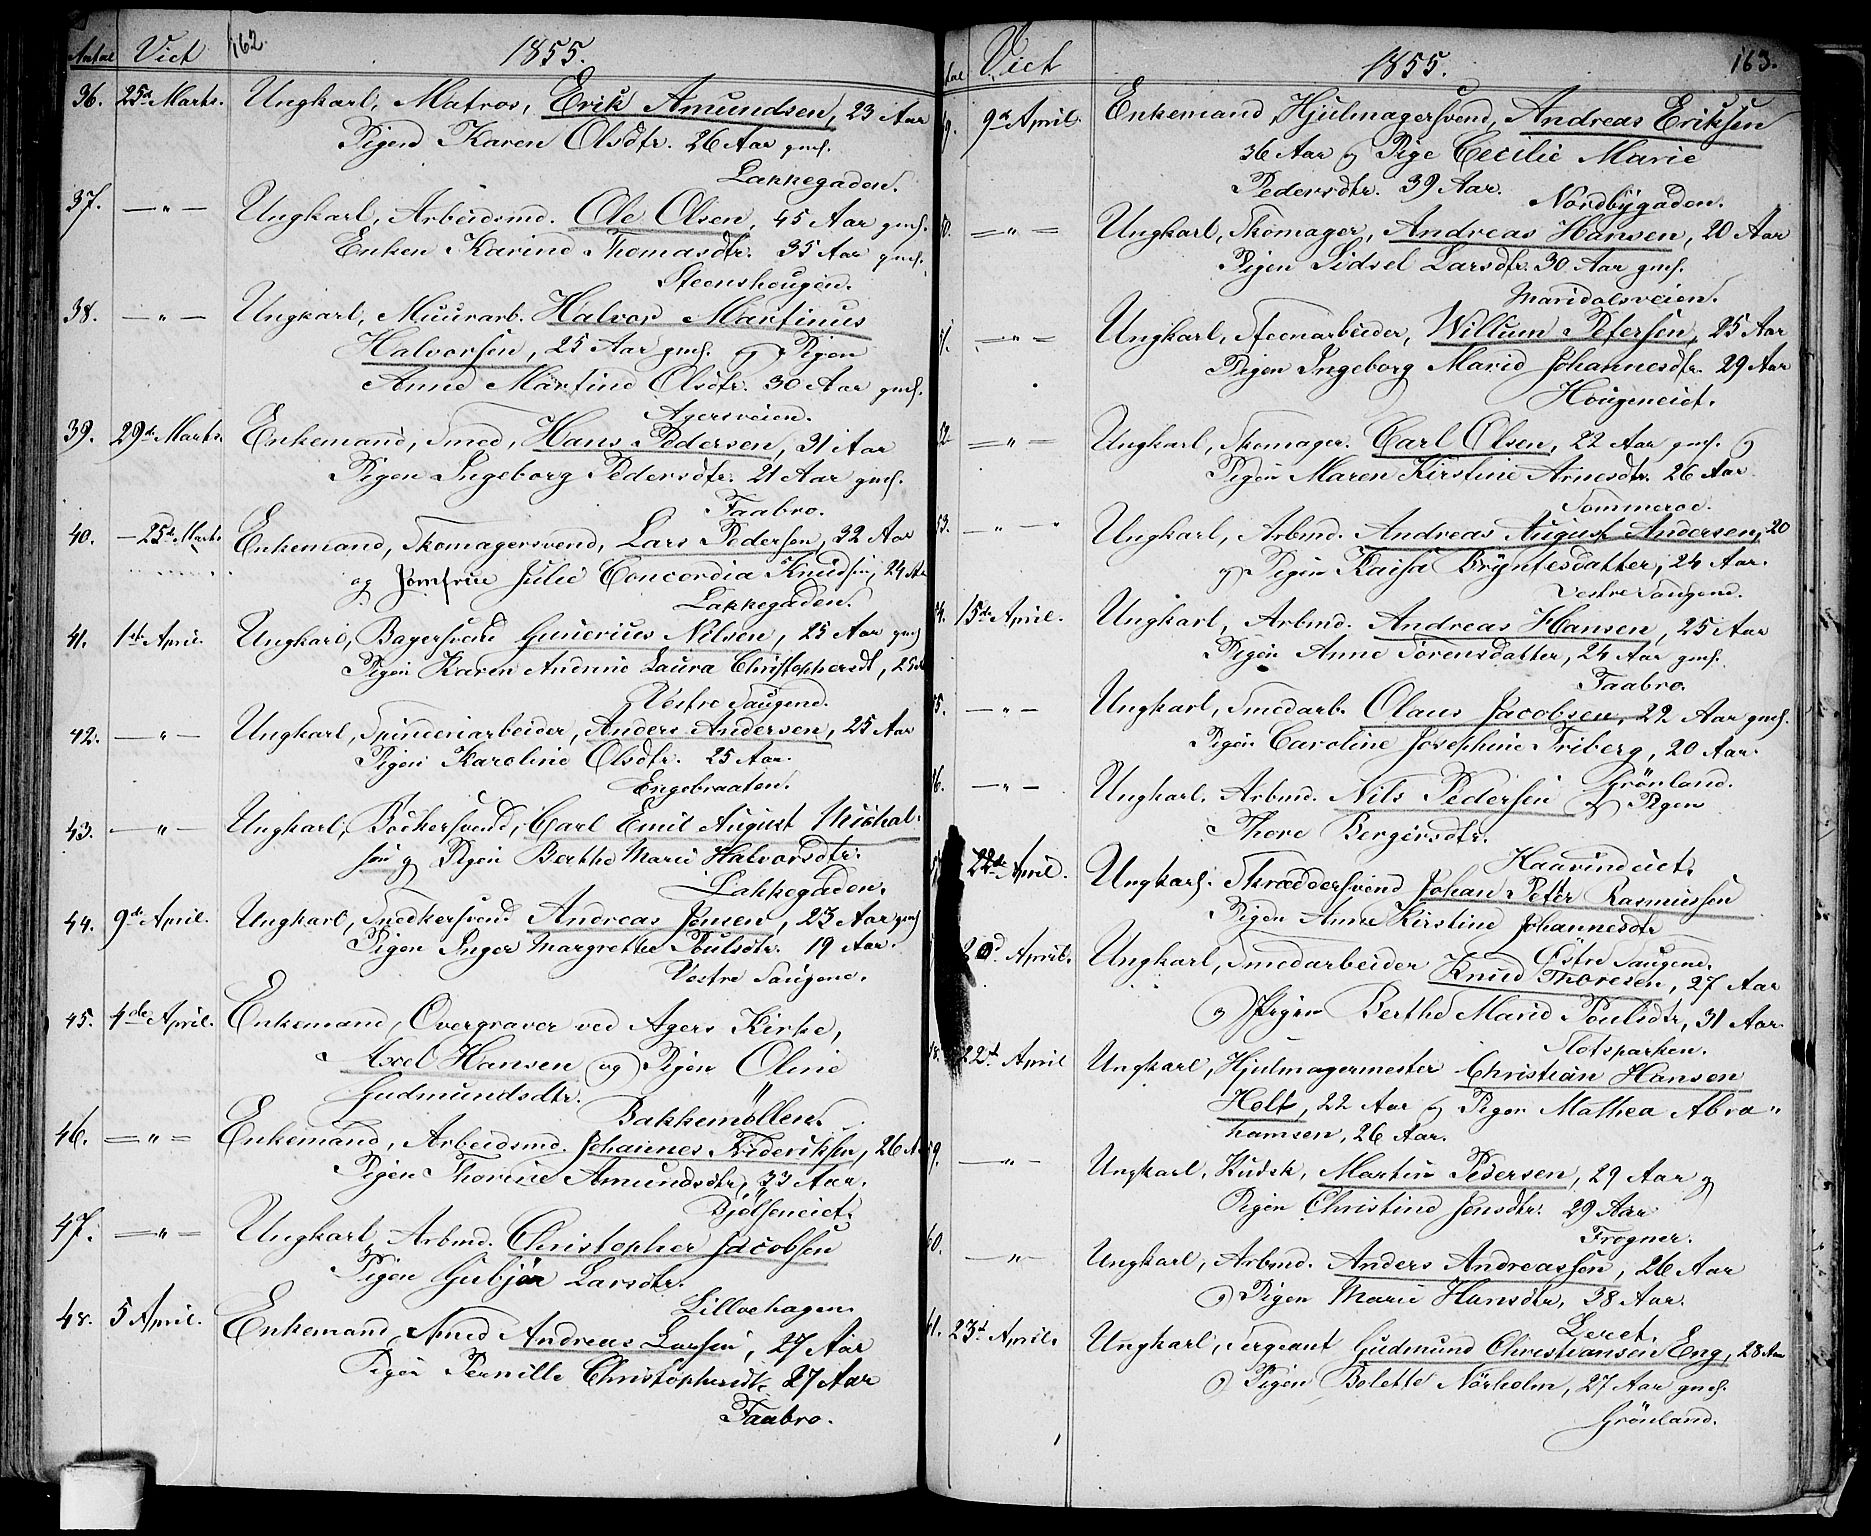 Antal Viet 162. 1855.
36. 25d Marts. Ungkarl, Matros, Erik Amundsen, 23 Aar
Pigen Karen Olsdtr. 26 Aar gmf.
Lakkegaden.
37. — " — Ungkarl, Arbeidsmd. Ole Olsen, 45 Aar gmf.
Enken Karine Thomasdtr. 35 Aar gmf.
Steenshougen.
38. — " — Ungkarl, Muurarb. Halvor Martinus
Halvorsen, 25 Aar gmf. og Pigen
Anne Martine Olsdtr. 30 Aar gmf.
Agersveien.
39. 29de Marts. Enkemand, Smed, Hans Pedersen, 31 Aar
Pigen Ingeborg Pedersdtr. 21 Aar gmf.
Faabro.
40. — 25de Marts Enkemand, Skomagersvend, Lars Pedersen, 32 Aar
og Jomfrue Julie Concordia Knudsen, 24 Aar
Lakkegaden.
41. 1ste April. Ungkarl, Bagersvend Gunerius Nilsen, 25 Aar gmf
Pigen Karen Andrine Laura Christophersdt, 25
Vestre Saugene.
42. — " — Ungkarl, Spinderiarbeider, Anders Andersen, 25 Aar
Pigen Karoline Olsdtr. 25 Aar.
Engebraaten.
43. — " — Ungkarl, Bödkersvend, Carl Emil August Michal-
sen og Pigen Berthe Marie Halvorsdtr.
Lakkegaden.
44. 9de April. Ungkarl, Snedkersvend Andreas Jensen, 23 Aar gmf
Pigen Inger Margrethe Poulsdtr. 19 Aar.
Vestre Saugene.
45. 4de April. Enkemand, Overgraver ved Agers Kirke,
Axel Hansen og Pigen Oline
Gudmundsdtr.
Bakkemöllen.
46. — " — Enkemand, Arbeidsmd. Johannes Frideriksen, 26 A
Pigen Thorine Amundsdtr, 33 Aar.
Bjölseneiet.
47. — " — Ungkarl, Arbmd. Christopher Jacobsen
Pigen Gubjør Larsdtr.
Lillohagen.
48. 5 April. Enkemand, Smed Andreas Larsen, 27 Aar
Pigen Pernille Christophersdtr 27 Aar
Faabro.
tal Viet 1855. 163.
9. 9de April. Enkemand, Hjulmagersvend, Andreas Eriksen
36 Aar og Pige Cecilie Marie
Pedersdtr. 39 Aar.
Nordbygaden.
0. — " — Ungkarl, Skomager, Andreas Hansen, 20 Aar
Pigen Sidsel Larsdtr. 30 Aar gmf.
Maridalsveien.
1. — " — Ungkarl, Steenarbeider, Willum Petersen, 25 Aar
Pigen Ingeborg Marie Johannesdtr. 29 Aar
Hougeneiet.
52 — " — Ungkarl, Skomager. Carl Olsen, 22 Aar gmf. og
Pigen Maren Kirstine Arnesdtr. 26 Aar.
Sommeroe.
53. — " — Ungkarl, Arbmd. Andreas August Andersen, 20
og Pigen Kaisa Bryntesdatter, 24 Aar.
Vestre Saugene.
4. 15de April. Ungkarl, Arbmd. Andreas Hansen, 25 Aar
Pigen Anne Sörensdatter, 24 Aar gmf.
Faabro.
5. — " — Ungkarl, Smedarb. Olaus Jacobsen, 22 Aar gmf.
Pigen Caroline Josephine Friberg, 20 Aar.
Grönland.
6. — " — Ungkarl. Arbmd. Nils Pedersen og Pigen
Thore Bergersdtr.
Haavindeiet.
22de April. Ungkarl. Skræddersvend Johan Peter Rasmussen
Pigen Anne Kirstine Johannesdtr
Östre Saugene.
20d April. Ungkarl, Smedarbeider Knud Thoresen, 27 Aar
og Pigen Berthe Marie Poulsdtr, 31 Aar.
Slotsparken.
58. 22d April Ungkarl, Hjulmagermester Christian Hansen
Holt, 22 Aar og Pigen Mathea Abra-
hamsen, 26 Aar.
59. — " — Ungkarl, Kudsk, Martin Pedersen, 29 Aar og
Pigen Christine Jensdtr. 29 Aar
Frogner.
60. — " — Ungkarl, Arbmd. Anders Andreassen, 26 Aar
og Pigen Marie Hansdtr, 38 Aar.
Leret.
61. 23d April. Ungkarl, Sergeant Gudmund Christiansen Eng, 28 Aar
og Pigen Bolette Nörholm, 27 Aar, gmf.
Grönland.